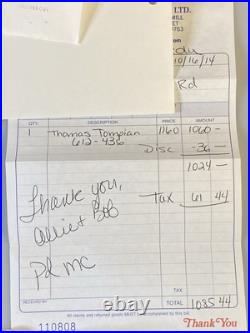 LTD.
MILL
10/16/14
Rd
QTY. DESCRIPTION PRICE AMOUNT
1 Thomas Tompian 1160 1060 -
612-436 Disc -36 -
1024 -
Thank you, Tax 61 44
Allie + Bob
Pd MC
TAX
RECEIVED BY TOTAL 1085 44
All claims and returned goods MUST be accompanied by this bill.
110808 Thank You